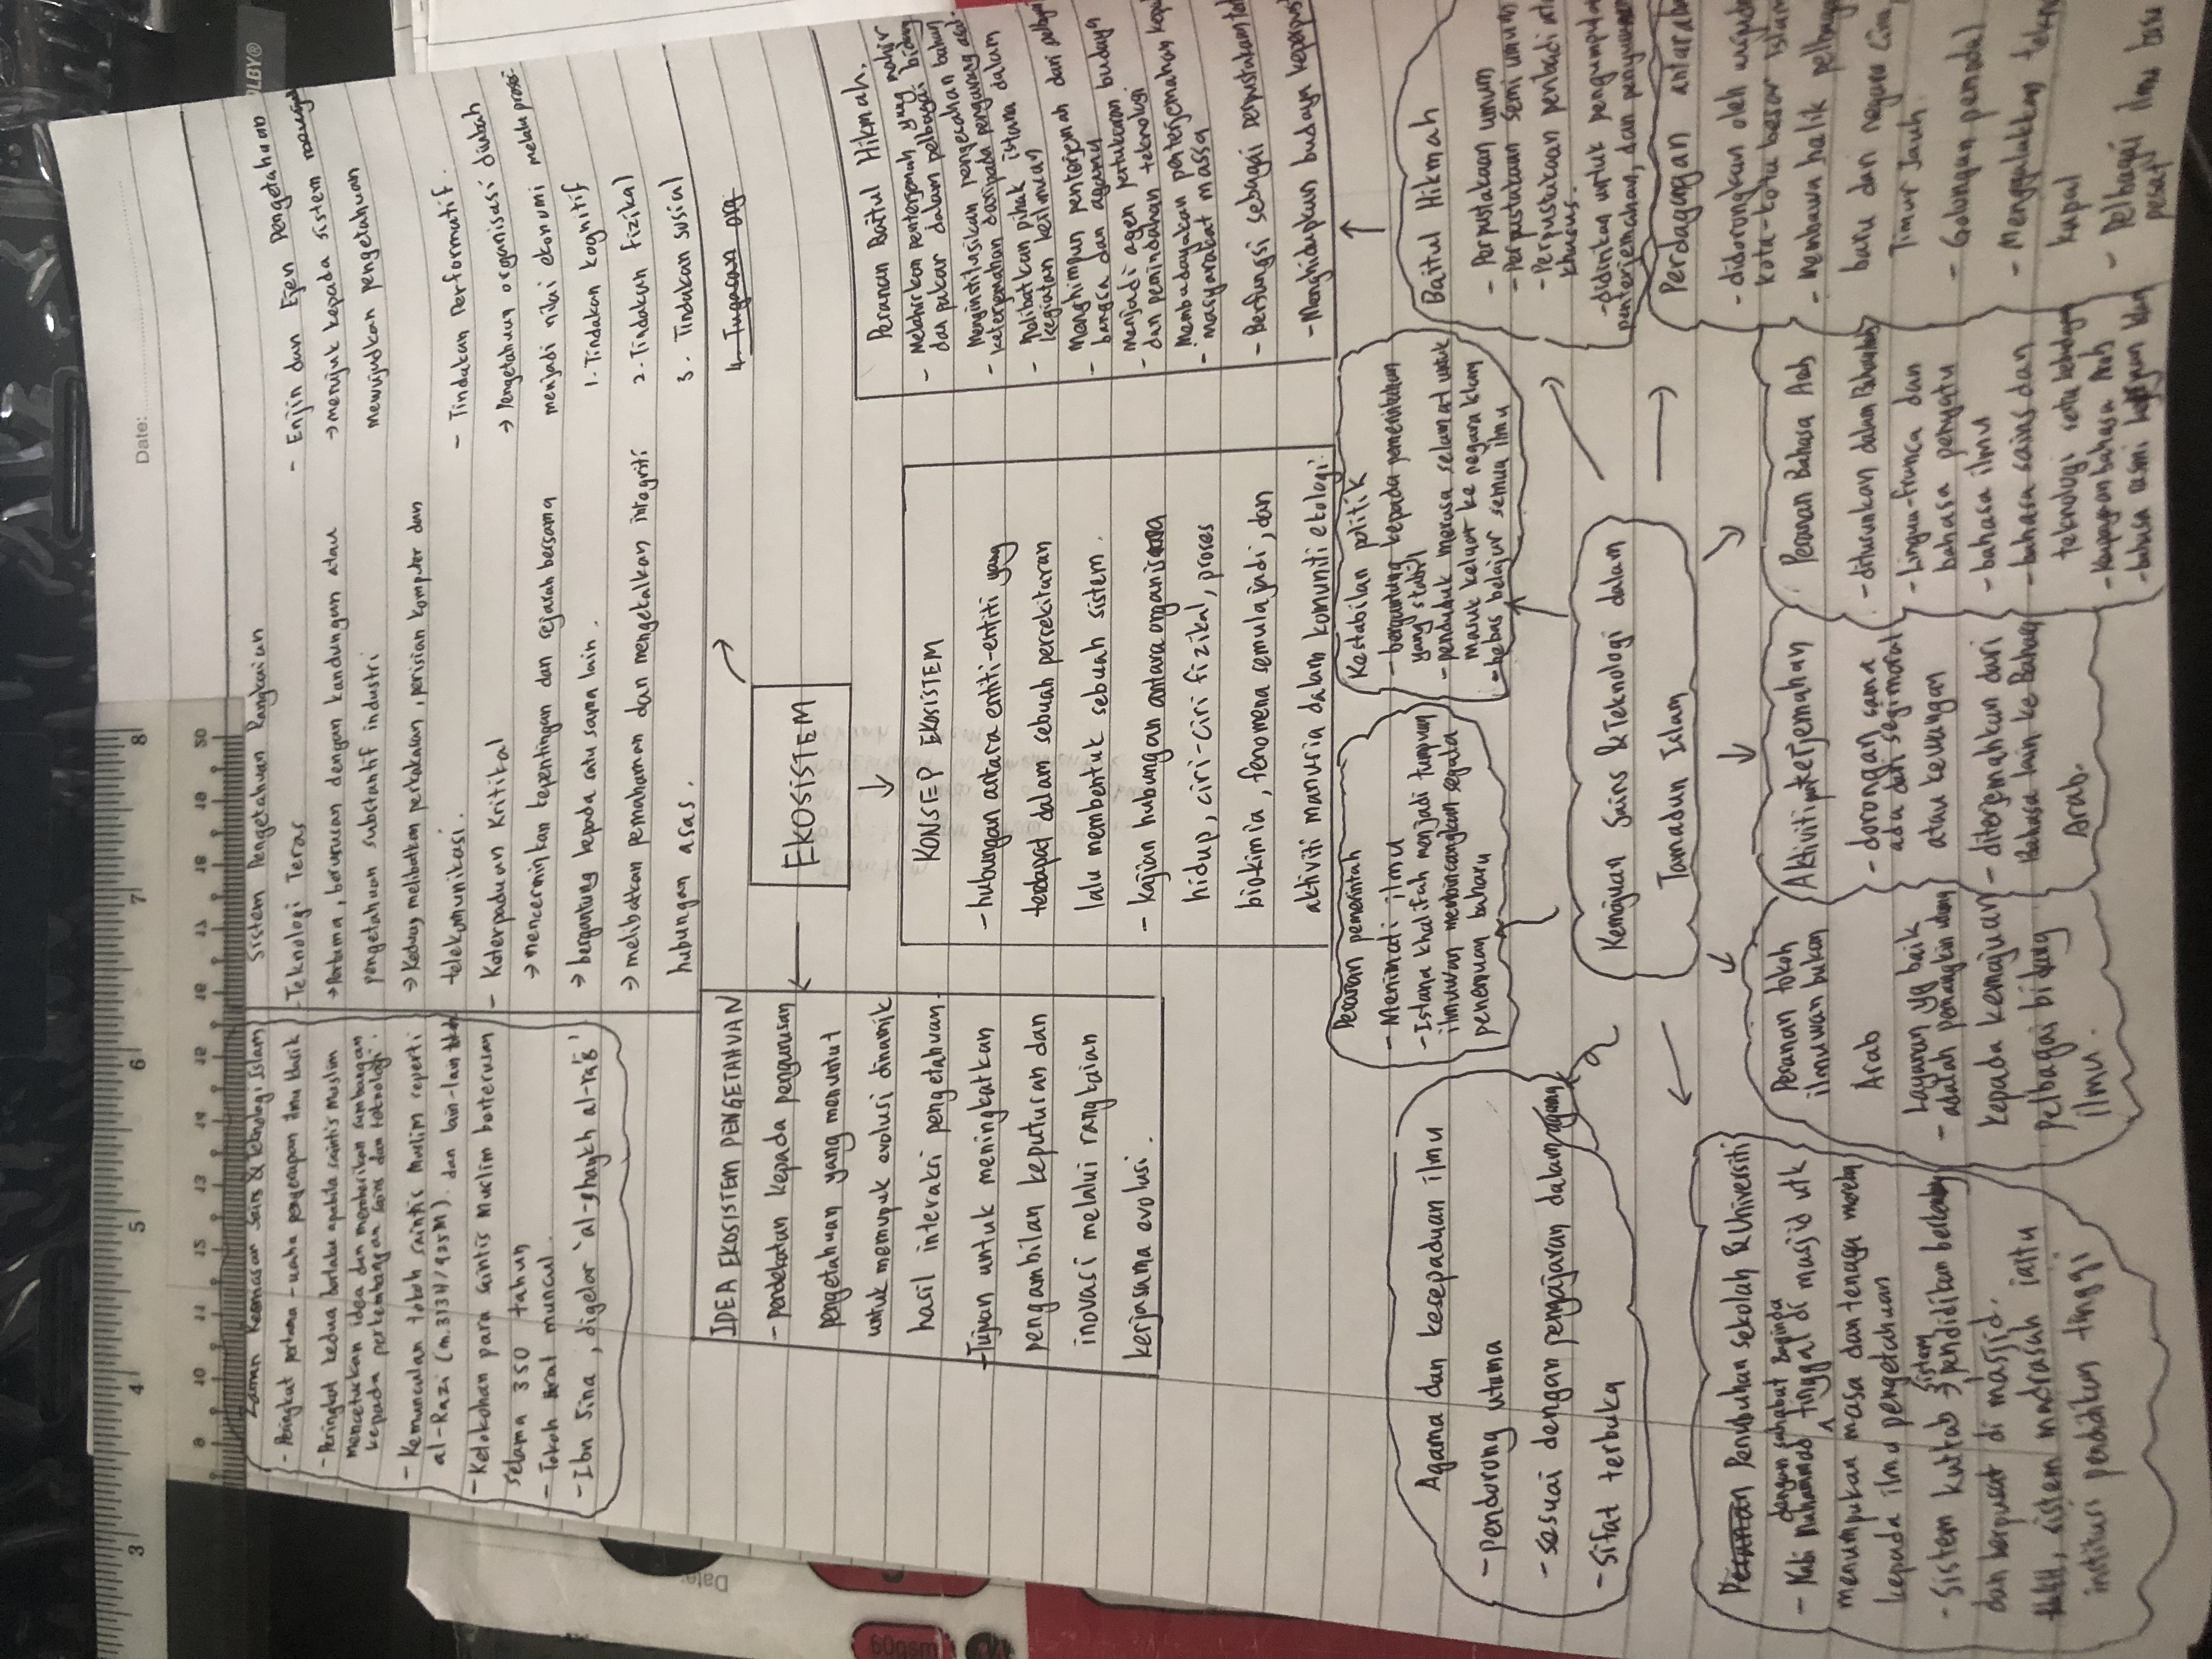 Date:
Zaman Keemasan Sains & Teknologi Islam
- Peringkat pertama - usaha penyerapan ilmu
- Peringkat kedua berlaku apabila saintis muslim
mencetuskan idea dan memberikan sumbangan
kepada perkembangan sains dan teknologi.
- Kemunculan tokoh saintis Muslim seperti
al-Razi (m.313H/925M). dan lain-lain
- Ketokohan para saintis muslim berterusan
selama 350 tahun
- Tokoh Barat muncul.
- Ibn Sina, digelar 'al-shaykh al-ra'is'
Sistem Pengetahuan Rangkaian
- Teknologi Teras
→ Pertama, berurusan dengan kandungan atau
pengetahuan substantif industri
→ Kedua, melibatkan perkakasan, perisian komputer dan
telekomunikasi.
- Keterpaduan Kritikal
→ mencerminkan kepentingan dan sejarah bersama
→ bergantung kepada satu sama lain.
→ melibatkan pemahaman dan mengekalkan integriti
hubungan asas.
- Enjin dan Ejen Pengetahuan
→ merujuk kepada sistem
mewujudkan pengetahuan
- Tindakan Performatif.
→ Pengetahuan organisasi diubah
menjadi nilai ekonomi melalui
1. Tindakan kognitif
2. Tindakan fizikal
3. Tindakan sosial
4. Tugasan org
EKOSISTEM
IDEA EKOSISTEM PENGETAHUAN
- pendekatan kepada pengurusan
pengetahuan yang menuntut
untuk memupuk evolusi dinamik
hasil interaksi pengetahuan.
- Tujuan untuk meningkatkan
pengambilan keputusan dan
inovasi melalui rangkaian
kerjasama evolusi.
KONSEP EKOSISTEM
- hubungan antara entiti-entiti yang
terdapat dalam sebuah persekitaran
lalu membentuk sebuah sistem.
- kajian hubungan antara organisma
hidup, ciri-ciri fizikal, proses
biokimia, fenomena semulajadi, dan
aktiviti manusia dalam komuniti ekologi.
Peranan Baitul Hikmah.
- Melahirkan penterjemah yang mahir
dan pakar dalam pelbagai bidang
- Menginstitusikan pengecahan bahan
keterjemahan daripada pengarang
- Melibatkan pihak istana dalam
kegiatan keilmuan
- Menghimpun penterjemah dari
bangsa dan agama
- menjadi agen pertukaran budaya
dan pemindahan teknologi.
- Membudayakan penterjemahan
masyarakat massa
- Berfungsi sebagai
- Menghidupkan budaya
Kemajuan Sains & Teknologi dalam
Tamadun Islam
Agama dan kesepaduan ilmu
- pendorong utama
- sesuai dengan pengajaran dalam agama
- Sifat terbuka
Peranan pemerintah
- Meminati ilmu
- Istana khalifah menjadi tumpuan
ilmuwan membincangkan segala
penemuan baharu
Kestabilan politik
- bergantung kepada pemerintahan
yang stabil
- penduduk merasa selamat untuk
masuk keluar ke negara Islam
- bebas belajar semua ilmu
Baitul Hikmah
- Perpustakaan umum
- Perpustakaan semi umum
- Perpustakaan peribadi
khusus.
- didirikan untuk
penterjemahan, dan
Penubuhan sekolah & Universiti
dengan sahabat Baginda
- Nabi Muhammad tinggal di masjid utk
menumpukan masa dan tenaga mereka
kepada ilmu pengetahuan
- Sistem kuttab → sistem pendidikan
dan berpusat di masjid.
sistem madrasah iaitu
institusi pendidikan tinggi
Peranan tokoh
ilmuwan bukan
Arab
- Layanan yg baik
- adalah
kepada kemajuan
pelbagai bidang
ilmu.
Aktiviti penterjemahan
- dorongan sama
ada dari segi moral
atau kewangan
- diterjemahkan dari
Bahasa lain ke Bahasa
Arab.
Peranan Bahasa Arab
- diturunkan dalam
- Lingua-franca dan
bahasa penyatu
- bahasa ilmu
- bahasa sains dan
teknologi
- bahasa rasmi
Perdagangan
- didorongkan oleh
kota-kota besar Islam
- membawa balik
baru dari negara Cina,
Timur Jauh
- Golongan pemodal
- Menggalakkan
kapal
- Pelbagai ilmu baru
pesat